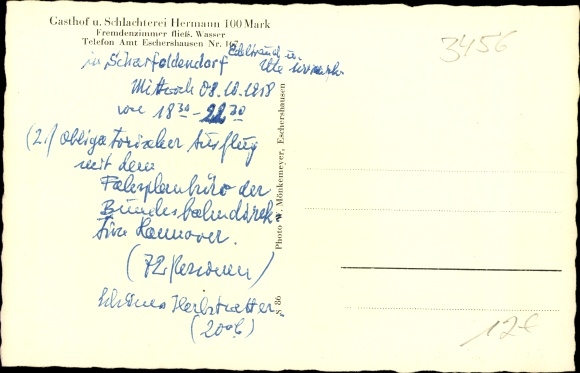 Gasthof u. Schlachterei Hermann 100 Mark
Fremdenzimmer fließ. Wasser
Telefon Amt Eschershausen Nr.
Edeltraud u.
in Scharfoldendorf Ute
Mittwoch 08.10.1958
von 18³⁰-22³⁰
(2.) obligatorischer Ausflug
mit dem
Fahrplanbüro der
Bundesbahndirek
tion Hannover.
(72 Personen)
Schönes Herbstwetter.
(20°C)
Photo W. Mönkemeyer, Eschershausen
S 86
3456
12€